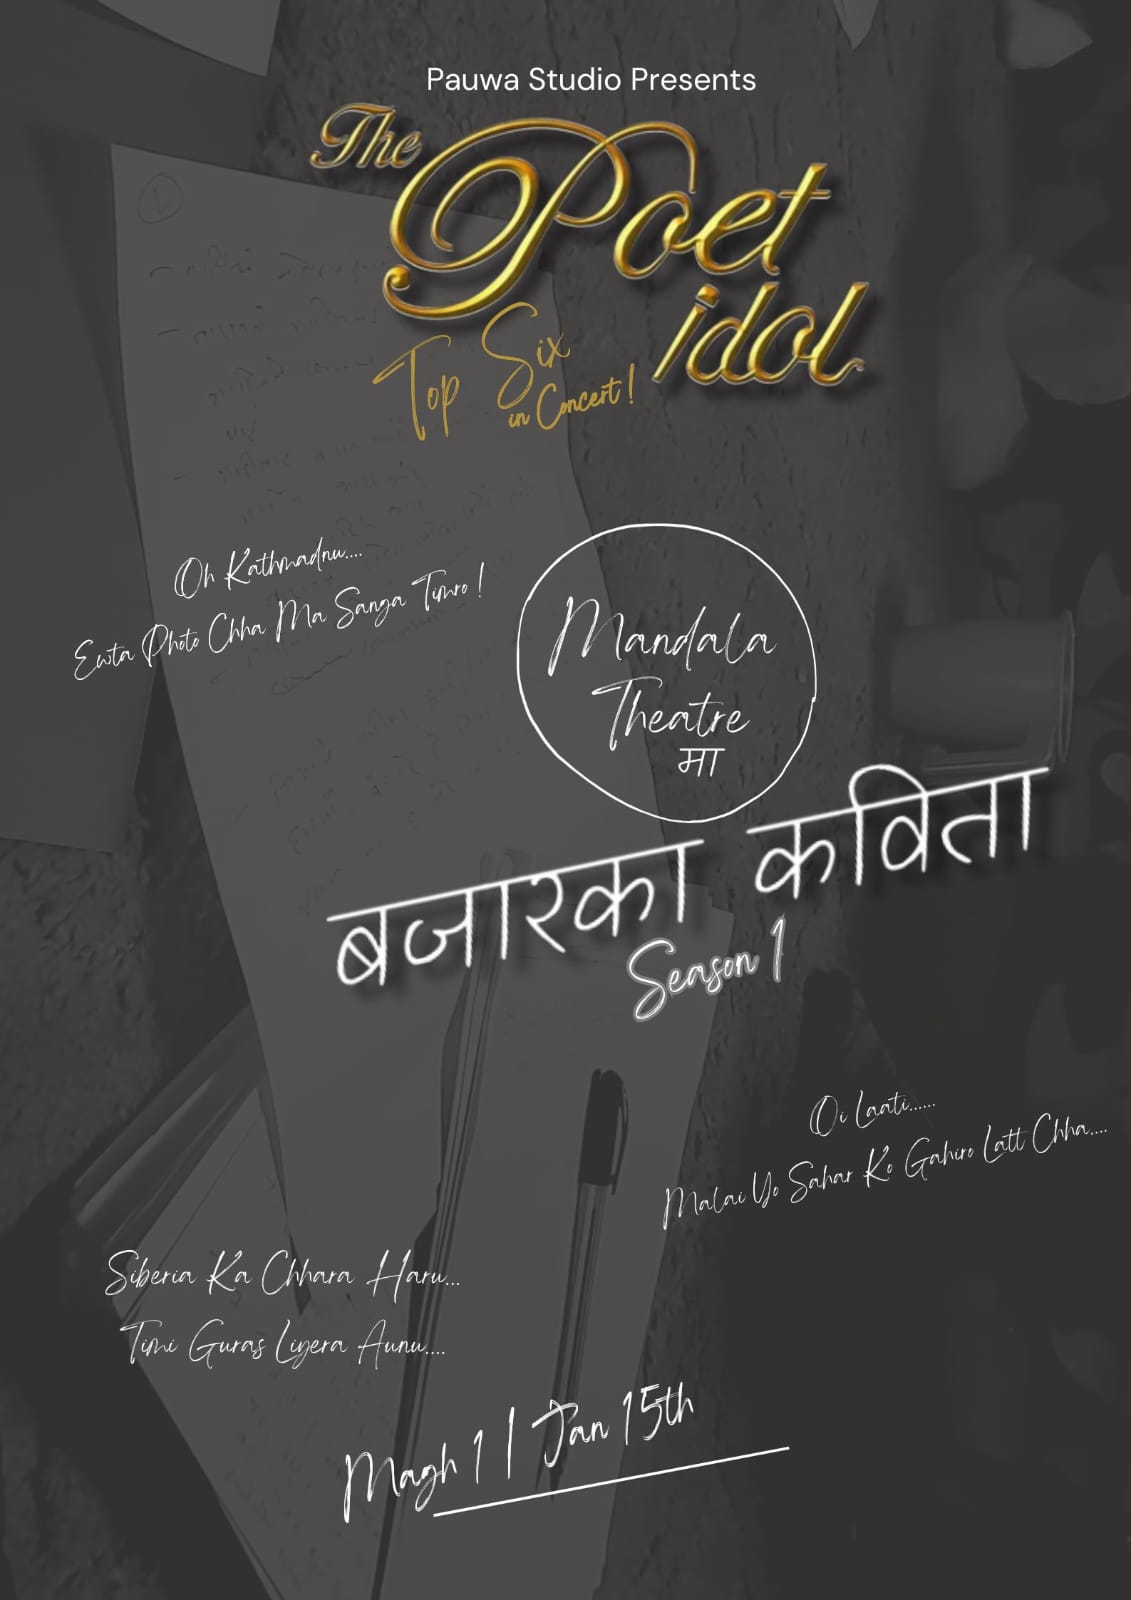 Pauwa Studio Presents
The
Poet
idol
Top Six
in Concert!
Oh Kathmadnu....
Ewta Photo Chha Ma Sanga Timro!
Mandala
Theatre
मा
बजारका कविता
Season 1
Oi Laati......
Malai Yo Sahar Ko Gahiro Latt Chha....
Siberia Ka Chhara Haru...
Timi Guras Liyera Aunu....
Magh 1 | Jan 15th